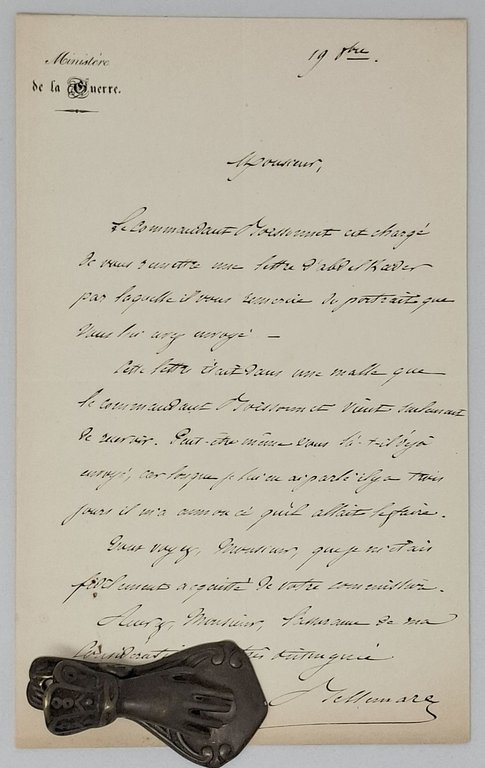 Ministère
de la Guerre.
19 8bre.
Monsieur,
Le commandant Boissonnet est chargé
de vous remettre une lettre d'abd el Kader
par laquelle il vous remercie du portrait que
vous lui avez envoyé —
Cette lettre était dans une malle que
le commandant Boissonnet vient seulement
de recevoir. Peut-être même vous l'a-t-il déjà
envoyé, car lorsque je lui en ai parlé il y a trois
jours il m'a annoncé qu'il allait le faire.
Vous voyez, Monsieur, que je m'étais
fidèlement acquitté de votre commission.
Agréez, Monsieur, l'assurance de ma
très distinguée
Bellemare